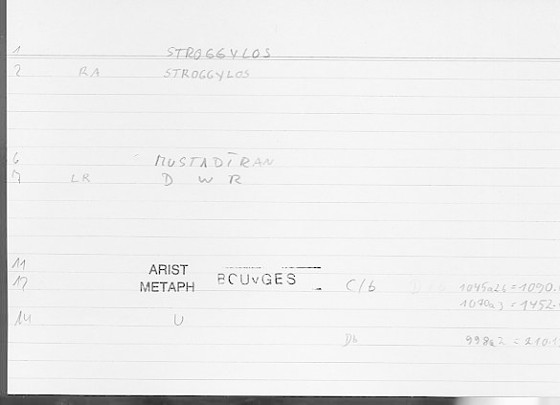 1 STROGGYLOS
2 RA STROGGYLOS
6 MUSTADĪRAN
7 LR D W R
11 ARIST
12 METAPH BOUYGES C/b 1045a26=1090.
1070a3=1452.
14 U
Db 998a2=210.1